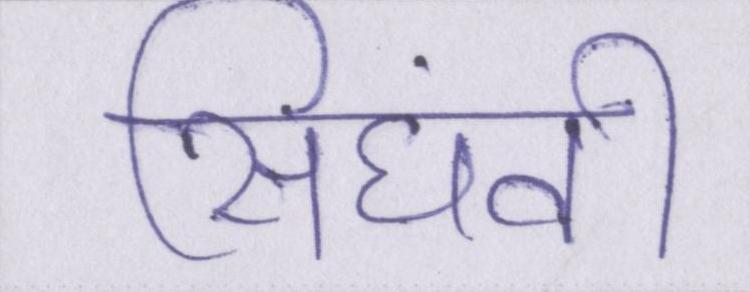 सिंघंवी